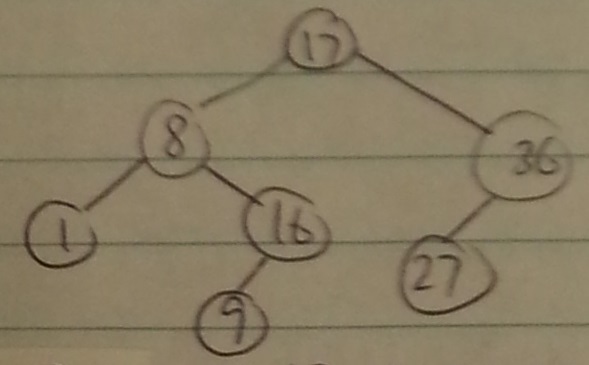 17
8
36
1
16
27
9